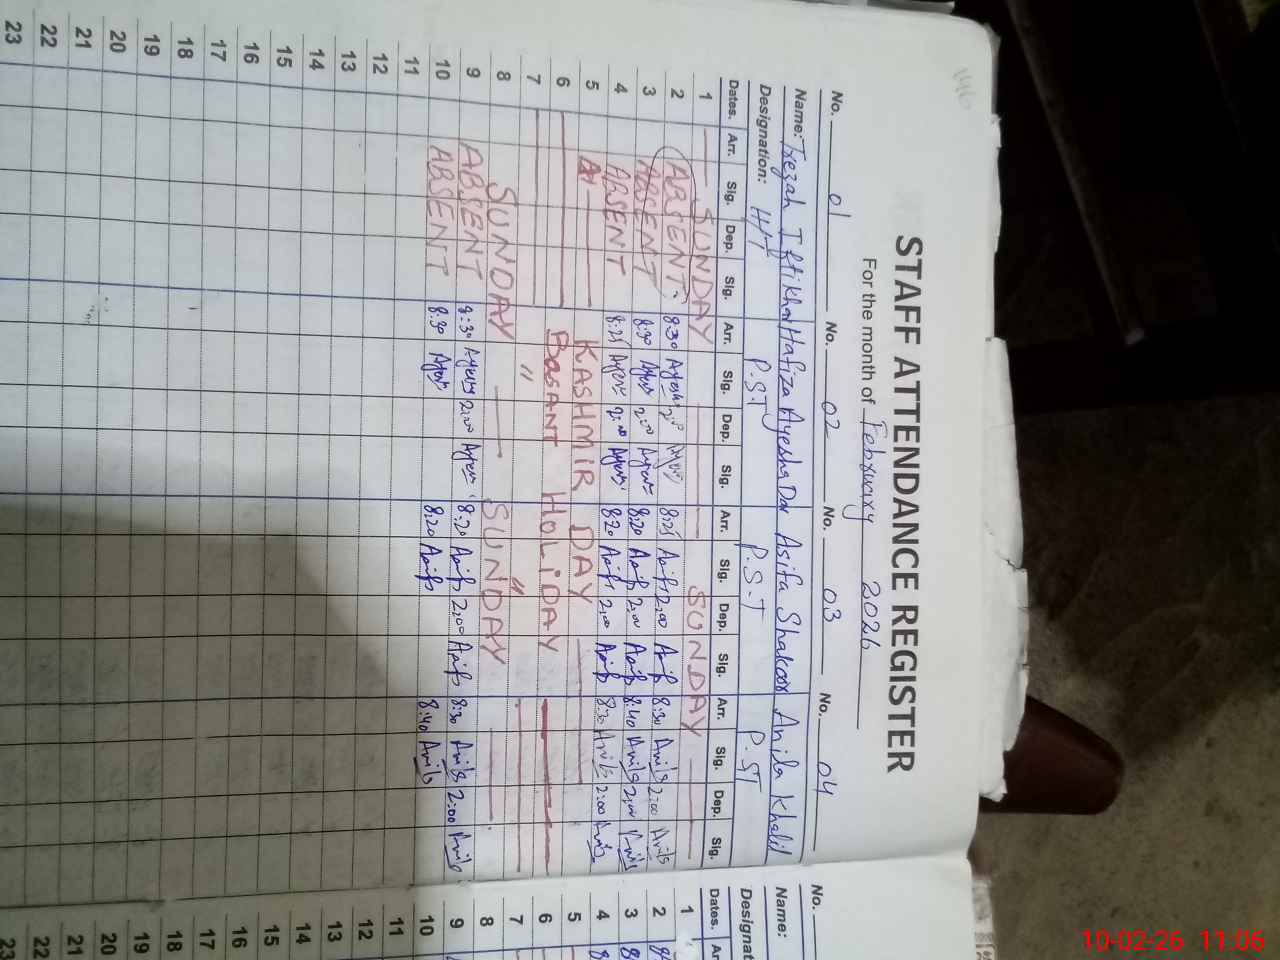 146
STAFF ATTENDANCE REGISTER
For the month of February 2026
No. 01 No. 02 No. 03 No. 04
Name: Irezah Iftikhar Hafiza Ayesha Dar Asifa Shakoor Anila Khalil
Designation: H/T P.S.T P.S.T P.ST
Dates. Arr. Sig. Dep. Sig. Arr. Sig. Dep. Sig. Arr. Sig. Dep. Sig. Arr. Sig. Dep. Sig.
1 SUNDAY SUNDAY
2 ABSENT 8:30 Ayesha 2:00 8:25 Asifa 2:00 Asifa 8:30 Anila 2:00 Anila
3 ABSENT 8:30 Ayesha 2:00 Ayesha 8:20 Asifa 2:00 Asifa 8:40 Anila 2:00 Anila
4 ABSENT 8:25 Ayesha 2:00 Ayesha 8:20 Asifa 2:00 Asifa 8:30 Anila 2:00 Anila
5 KASHMIR DAY
6 BASANT HOLIDAY
7 " "
8 SUNDAY SUNDAY
9 ABSENT 8:30 Ayesha 2:00 Ayesha 8:20 Asifa 2:00 Asifa 8:30 Anila 2:00 Anila
10 ABSENT 8:30 Ayesha 8:20 Asifa 8:40 Anila
11
12
13
14
15
16
17
18
19
20
21
22
23
No.
Name:
Designat
Dates. Ar
1
2 8
3 8
4 8
5
6
7
8
9
10
11
12
13
14
15
16
17
18
19
20
21
22
23
10-02-26 11:06